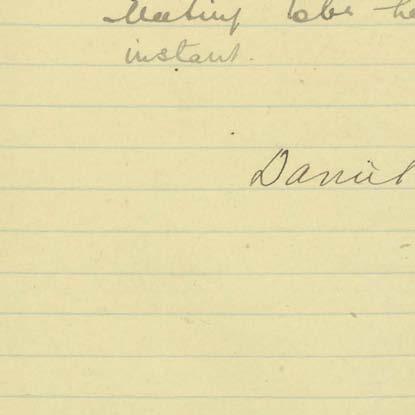 Meeting to be he
instant.
Daniel